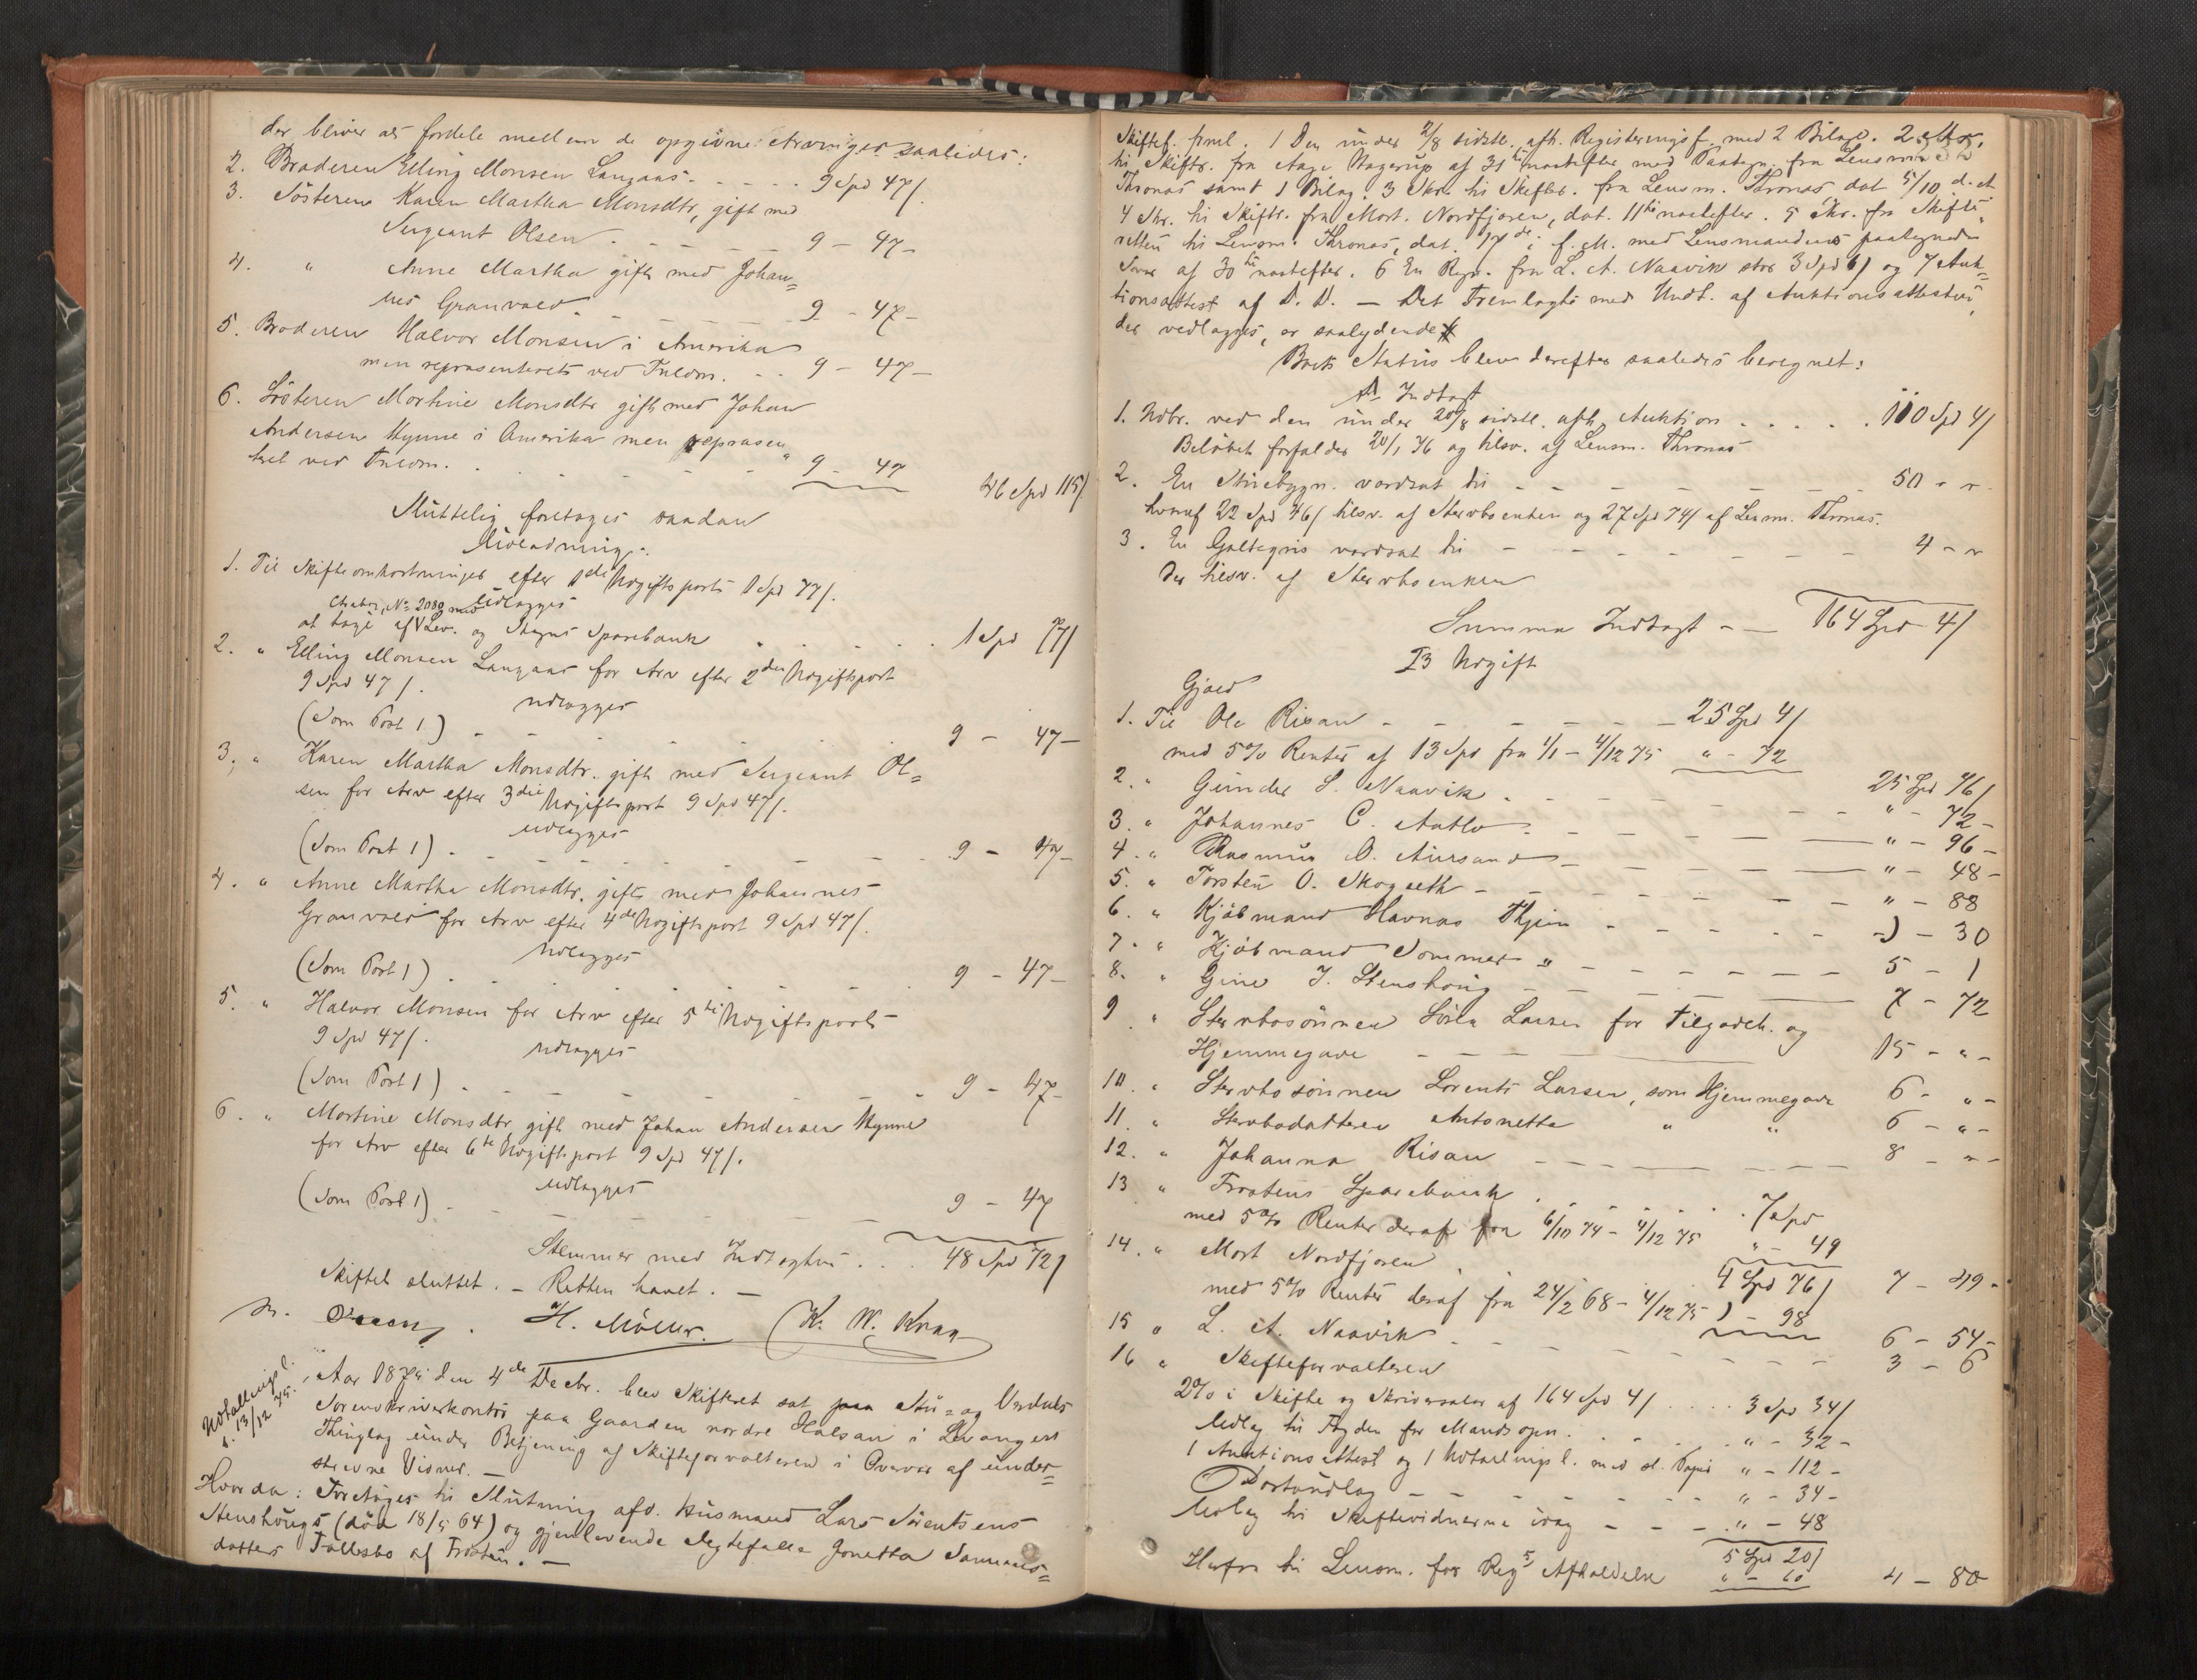 der bliver at fordele mellem de opgivne Arvinger saaledes:
2. Broderen Elling Monsen Langaas - - - - 9 Spd 47/.
3. Søsteren Karen Martha Monsdtr, gift med
Sergeant Olsen - - - - - - 9 - 47 -
4. " Anne Martha gift med Johan=
nes Granvald - - - - - - 9 - 47 -
5. Broderen Halvor Monsen i Amerika
men repræsenteret ved Fuldm. - - 9 - 47 -
6. Søsteren Martine Monsdtr gift med Johan
Andersen Mynne i Amerika men repræsen"
teret ved Fuldm. - - - - - - 9 - 47
46 Spd 115/
Sluttelig foretages saadan
Udlodning:
1. Til Skifteomkostninger efter 1ste Udgiftspost 1 Spd 77/.
udlægges
at tage af Contrabog No 2080 med Lev. og Skogns Sparebank . . . . 1 Spd 77/
2. " Elling Monsen Langaas for Arv efter 2den Udgiftspost
9 Spd 47/.
udlægges
(Som Post 1) - - - - - 9 - 47 -
3. " Karen Martha Monsdtr. gift med Sergeant Ol=
sen for Arv efter 3die Udgiftspost 9 Spd 47/.
udlægges
(Som Post 1) - - - - - 9 - 47 -
4. " Anne Martha Monsdtr. gift med Johannes
Granvald for Arv efter 4de Udgiftspost 9 Spd 47/.
udlægges
(Som Post 1) - - - - - 9 - 47 -
5. " Halvor Monsen for Arv efter 5te Udgiftspost
9 Spd 47/.
udlægges
(Som Post 1) - - - - - 9 - 47 -
6. " Martine Monsdtr gift med Johan Andersen Mynne
for Arv efter 6te Udgiftspost 9 Spd 47/.
udlægges
(Som Post 1) - - - - - 9 - 47
Stemmer med Indtægten . . . 48 Spd 72/
Skiftet sluttet. - Retten hævet. -
H. Möller. K. W. Krag
Udtallingsl.
d. 13/12 75.
Aar 1875 den 4de Decbr. blev Skifteret sat paa Stør- og Verdals
Sorenskriverkontor paa Gaarden nordre Halsan i Levangers
Thinglag under Betjening af Skifteforvalteren i Overvær af under=
skrevne Vidner. -
Hvorda: Foretoges til Slutning afd. Husmand Lars Sørentsens
Stenhougs (død 18/5 64) og gjenlevende Ægtefælle Jonetta Samuels=
datters Fællesbo af Frosten. -
Skiftef. freml. 1 Den under 2/8 sidstl. afh. Registreringsf. med 2 Bilage. 2 Skr.
til Skiftr. fra Aage Hagerup af 31te næstefter med Paategn. fra Lensmand
Thronæs samt 1 Bilag. 3 Skr. til Skiftr. fra Lensm. Thronæs dat 5/10 d. A.
4 Skr. til Skiftr. fra Mort. Nordfjæren, dat. 11te næstefter. 5 Skr. fra Skifte"
retten til Lensm. Thronæs, dat. 17de i f. M. med Lensmandens paategnede
Svar af 30te næstefter. 6 En Regn. fra L. A. Naavik stor 3 Spd 6/ og 7 Auk=
tionsattest af D. D. - Det Fremlagte med Undt. af Auktionsattesten,
der vedlægges, er saalydende
Boets Status blev derefter saaledes beregnet:
A Indtægt
1. Udbr. ved den under 20/8 sidstl. afh. Auktion . . . . . 110 Spd 4/
Beløbet forfalder 20/1 76 og tilsv. af Lensm. Thronæs
2. En Stuebygn. værdsat til - - - - - 50 - "
hvoraf 22 Spd 46/ tilsv. af Stervboenken og 27 Spd 74/ af Lensm. Thronæs.
3. En Galtegris værdsat til - - - - - 4 - "
der tilsv. af Stervboenken
Summa Indtægt - - 164 Spd 4/
B Udgift
Gjæld
1. Til Ole Risan - - - - - 25 Spd 4/
med 5% Renter af 13 Spd fra 1/1 - 4/12 75 " - 72
25 Spd 76/
2. " Gunder S. Naavik - - - - - " - 72 -
3. " Johannes C. Aatlo - - - - - " - 96 -
4. " Rasmus O. Aursand - - - - - " - 48 -
5. " Torsten O. Skogseth - - - - - " - 88
6. " Kjøbmand Havnas Thjem - - - - - 30
7. " Kjøbmand Sommer " - - - - - 5 - 1
8. " Gine J. Stenhoug - - - - - 7 - 72
9 " Stervbosønnen Søren Larsen for Tilgodeh. og
Hjemmegave - - - - - 15 - " -
10. " Stervbosønnen Lorents Larsen, som Hjemmegave 6 - " -
11. " Stervbodatteren Antonette " " 6 - " -
12. " Johanna Risan - - - - - 8 - " -
13 " Frostens Sparebank . . . . . 7 Spd
med 5% Renter deraf fra 6/10 74 - 4/12 75 " - 49
7 - 49 -
14. " Mort Nordfjæren . . . 4 Spd 76/
med 5% Renter deraf fra 24/2 68 - 4/12 75 1 - 98
6 - 54 -
15 " L. A. Naavik - - - - - 3 - 6
16 " Skifteforvalteren
2% i Skifte og Skriversalær af 164 Spd 4/ . . . . 3 Spd 34/
Udlæg til Fogden for Mandsopn. . . . . " - 32 -
1 Auktionsattest og 1 Udtallingsl. med st. Papir " - 112 -
Portoudlæg - - - - - " - 34 -
Udlæg til Skiftevidnerne idag - - - " - 48
5 Spd 20/
Herfra til Lensm. for Regs Afholdelse " - 60
4 - 80